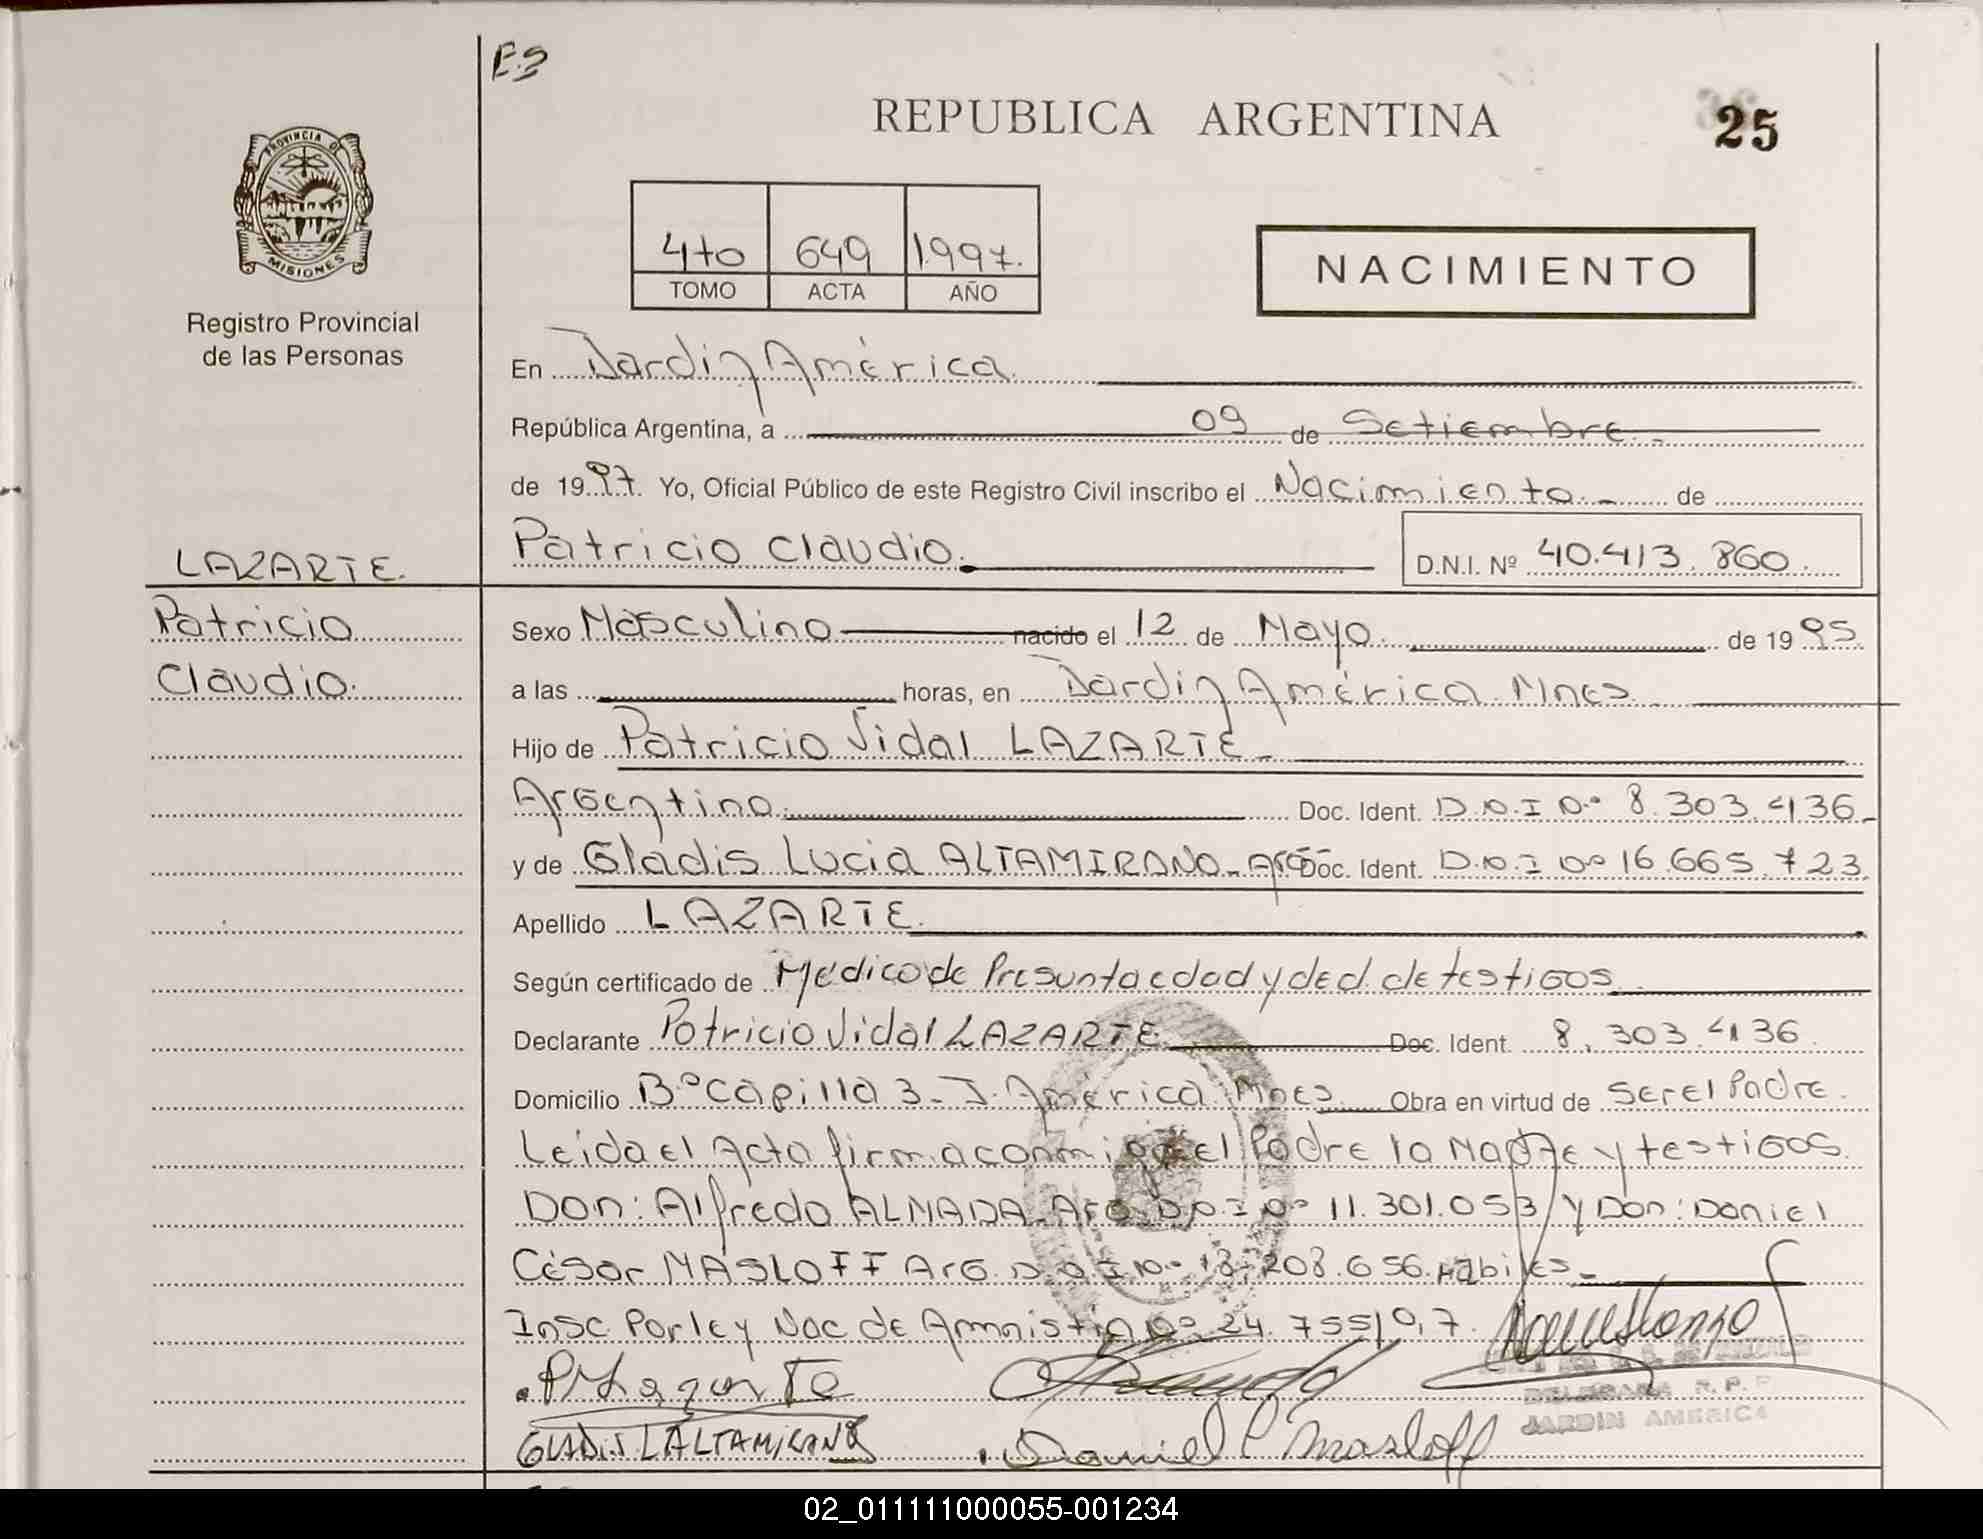 E2
REPUBLICA ARGENTINA
25
PROVINCIA DE
MISIONES
Registro Provincial
de las Personas
4to 649 1.997.
TOMO ACTA AÑO
NACIMIENTO
En Jardin América.
República Argentina, a 09 de Setiembre.
de 1997. Yo, Oficial Público de este Registro Civil inscribo el Nacimiento de
Patricio Claudio. D.N.I. Nº 40.413.860.
LAZARTE.
Patricio
Claudio.
Sexo Masculino nacido el 12 de Mayo de 1995.
a las horas, en Jardin América. Mnes.
Hijo de Patricio Vidal LAZARTE
Argentino. Doc. Ident. D.N.I Nº 8.303.436
y de Gladis Lucia ALTAMIRANO Arg Doc. Ident. D.N.I Nº 16.665.723
Apellido LAZARTE.
Según certificado de Medico de Presunta edad y de d. de testigos.
Declarante Patricio Vidal LAZARTE Doc. Ident. 8.303.436
Domicilio Bº Capilla 3 - J. América. Mnes Obra en virtud de ser el Padre.
Leida el Acta firma conmigo el Padre la Madre y testigos
Don: Alfredo ALMADA Arg. D.N.I Nº 11.301.053 y Don: Daniel
César MASLOFF Arg. D.N.I Nº 18.208.656. Habiles
Insc Por ley Nac de Amnistia Nº 24.755/97.
P V Lazarte
GLADIS L ALTAMIRANO
Daniel C Masloff
DELEGADA R.P.P
JARDIN AMERICA
02_011111000055-001234